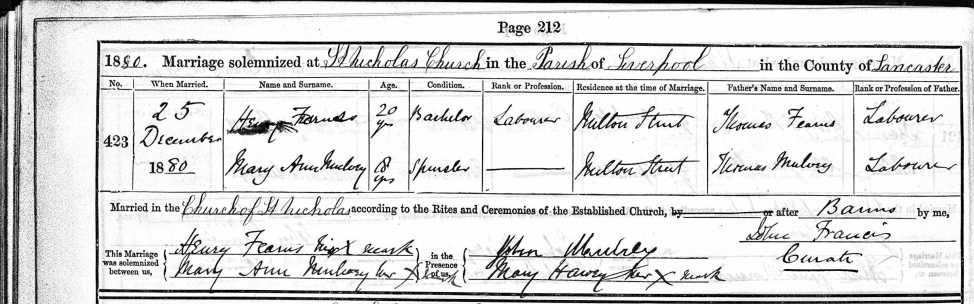 Page 212
1880. Marriage solemnized at St Nicholas Church in the Parish of Liverpool in the County of Lancaster
No. When Married. Name and Surname. Age. Condition. Rank or Profession. Residence at the time of Marriage. Father's Name and Surname. Rank or Profession of Father.
423 25 December 1880
Henry Fearns 20 yrs Bachelor Labourer Milton Street Thomas Fearns Labourer
Mary Ann Mulvey 18 yrs Spinster Milton Street Thomas Mulvey Labourer
Married in the Church of St Nicholas according to the Rites and Ceremonies of the Established Church, by or after Banns by me,
John Francis
Curate
This Marriage was solemnized between us,
Henry Fearns his X mark
Mary Ann Mulvey her X mark
in the Presence of us,
John
Mary her X mark